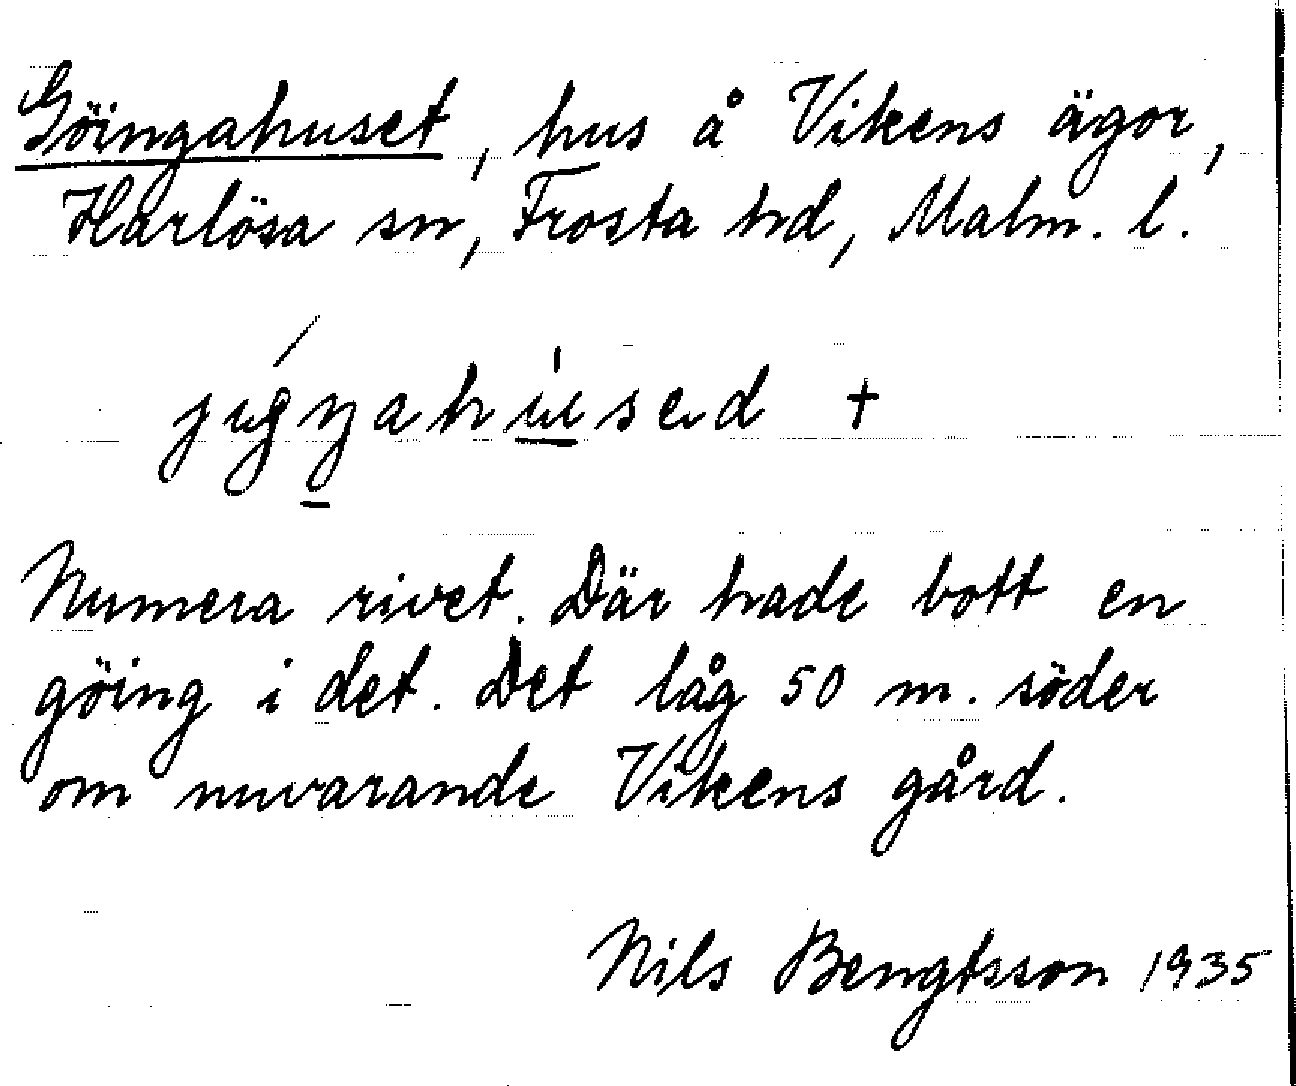 Göingahuset, hus å Vikens ägor,
Harlösa sn, Frosta hd, Malm. l.
+
Numera rivet. Där hade bott en
göing i det. Det låg 50 m. söder
om nuvarande Vikens gård.
Nils Bengtsson 1935